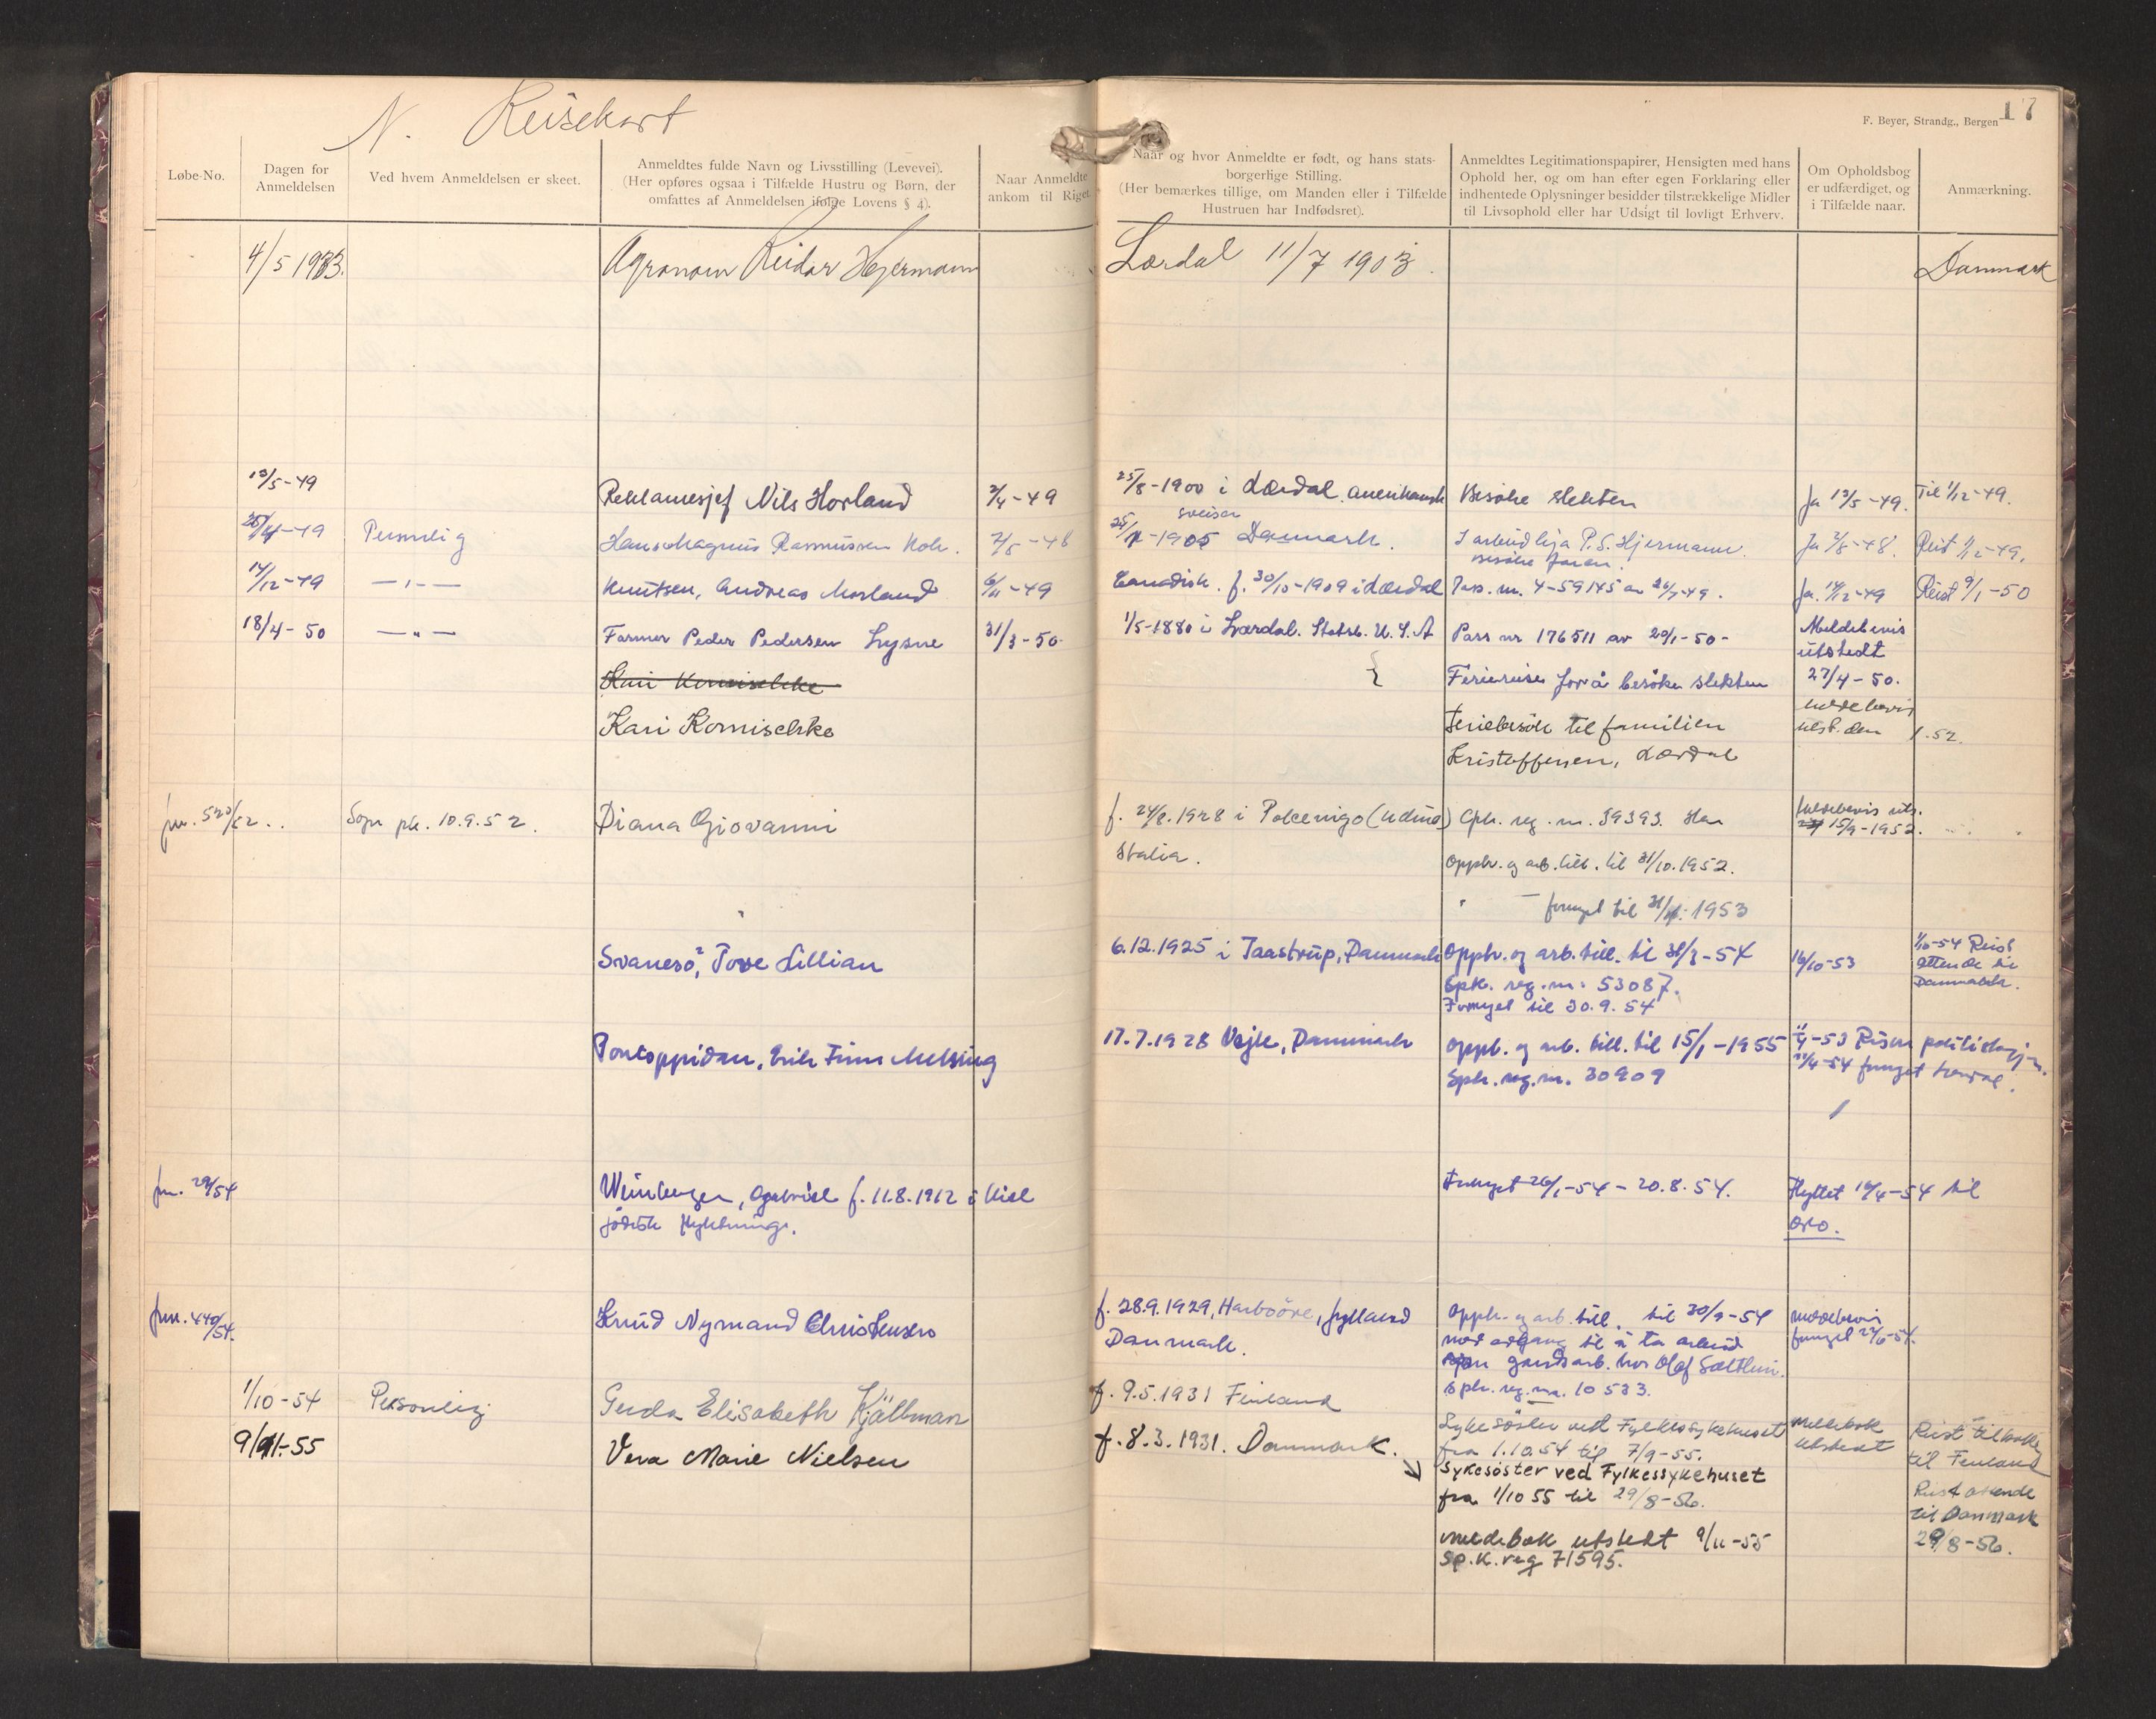 N. Reisekort
17
F. Beyer, Strandg., Bergen
Løbe-No.
Dagen for
Anmeldelsen
Ved hvem Anmeldelsen er skeet.
Anmeldtes fulde Navn og Livsstilling (Levevei).
(Her opføres ogsaa i Tilfælde Hustru og Børn, der
omfattes af Anmeldelsen ifølge Lovens § 4).
Naar Anmeldte
ankom til Riget.
Naar og hvor Anmeldte er født, og hans stats-
borgerlige Stilling.
(Her bemærkes tillige, om Manden eller i Tilfælde
Hustruen har Indfødsret).
Anmeldtes Legitimationspapirer, Hensigten med hans
Ophold her, og om han efter egen Forklaring eller
indhentede Oplysninger besidder tilstrækkelige Midler
til Livsophold eller har Udsigt til lovligt Erhverv.
Om Opholdsbog
er udfærdiget, og
i Tilfælde naar.
Anmærkning.
4/5 1933. Agronom Reidar Hjermann Lærdal 11/7 1903. Danmark
13/5-49 Reklamesjef Nils Horland 2/4-49 25/8-1900 i Lærdal amerikansk Besøke slekten Ja 13/5-49. Til 1/12-49.
sveiser
Personlig Hans Magnus Rasmussen 7/5-48 1905 Danmark. I arbeid hja P.S. Hjermann. Ja 7/5-48. Reist 1/12-49.
besøke faren.
14/12-49 -"- Knutsen, Andreas Morland 6/11-49 Canadisk. f. 30/10-1909 i Lærdal Pass. nr. 4-59145 av 26/7-49. Ja. 14/12-49 Reist 9/1-50
18/4-50 -"- Farmer Peder Pedersen Lysne 31/3-50 1/5-1880 i Lærdal. Statsb. U.S.A Pass nr 176511 av 20/1-50- Meldebevis
utstedt
Kari Komischke Feriereise for å besøke slekten 27/4-50.
Kari Komischke Feriebesøk til familien meldebevis
utst. den 1.52.
Kristoffersen, Lærdal
jnr. 520/52. Sogn pk. 10.9.52. Diana Giovanni f. 24/8.1928 i Polcenigo (Udine) Spk. reg. nr. 39393. Har Meldebevis uts.
15/9-1952.
Italia. opph. og arb. till. til 31/10.1952.
- fornyet til 1953
Svanesö, Tove Lillian 6.12.1925 i Taastrup, Danmark Opph. og arb. till. til 31/3-54 16/10-53 1/10-54 Reist
attende til
Danmark.
Spk. reg. nr. 53087.
Fornyet til 30.9.54
Pontoppidan, Erik Finn Melsing 17.7.1928 Vejle, Danmark oppb. og arb. till. til 15/1-1955
Spk. reg. nr. 30909 fornyet Lærdal.
jnr. 29/54 Weinberger, Gabriel f. 11.8.1912 i Kiel Fornyet 26/1-54 - 20.8.54. Flyttet 19/4-54 til
jødisk flyktning. Oslo.
jnr. 440/54. Knud Nymand Christensen f. 28.9.1929, Harboöre, Jylland Opph. og arb. till. til 30/9-54 meldebevis
Danmark. med adgang til å ta arbeid fornyet 22/6-54.
gardsarb. hos Olof Sælthun.
Spk. reg. nr. 10533.
1/10-54 Personlig Gerda Elisabeth Kjällman f. 9.5.1931 Finland
Sykesöster ved Fylkessykehuset Meldebok
utstedt Reist tilbake
til Finland
fra 1.10.54 til 7/9-55.
9/11-55 Vera Marie Nielsen f. 8.3.1931. Danmark. Sykesöster ved Fylkessykehuset
fra 1/10 55 til 29/8-56. Reist attende
til Danmark
29/8-56.
meldebok utstedt 9/11-55
Sp.k.reg 71595.